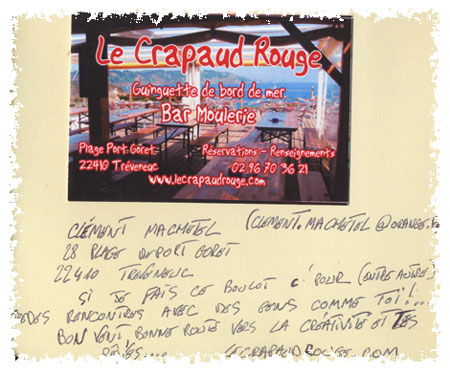 Le Crapaud Rouge
Guinguette de bord de mer
Bar Moulerie
Plage Port Goret
22410 Tréveneuc
Réservations - Renseignements
02 96 70 36 21
www.lecrapaudrouge.com
CLÉMENT MACHETEL (CLEMENT.MACHETEL@ORANGE.
28 PLAGE DU PORT GORET
22410 TREVENEUC
SI JE FAIS CE BOULOT C'POUR (ENTRE AUTRE)
DES RENCONTRES AVEC DES GENS COMME TOI!...
BON VENT BONNE ROUTE VERS LA CRÉATIVITÉ ET TES
RÊVES.... LECRAPAUDROUGE.COM